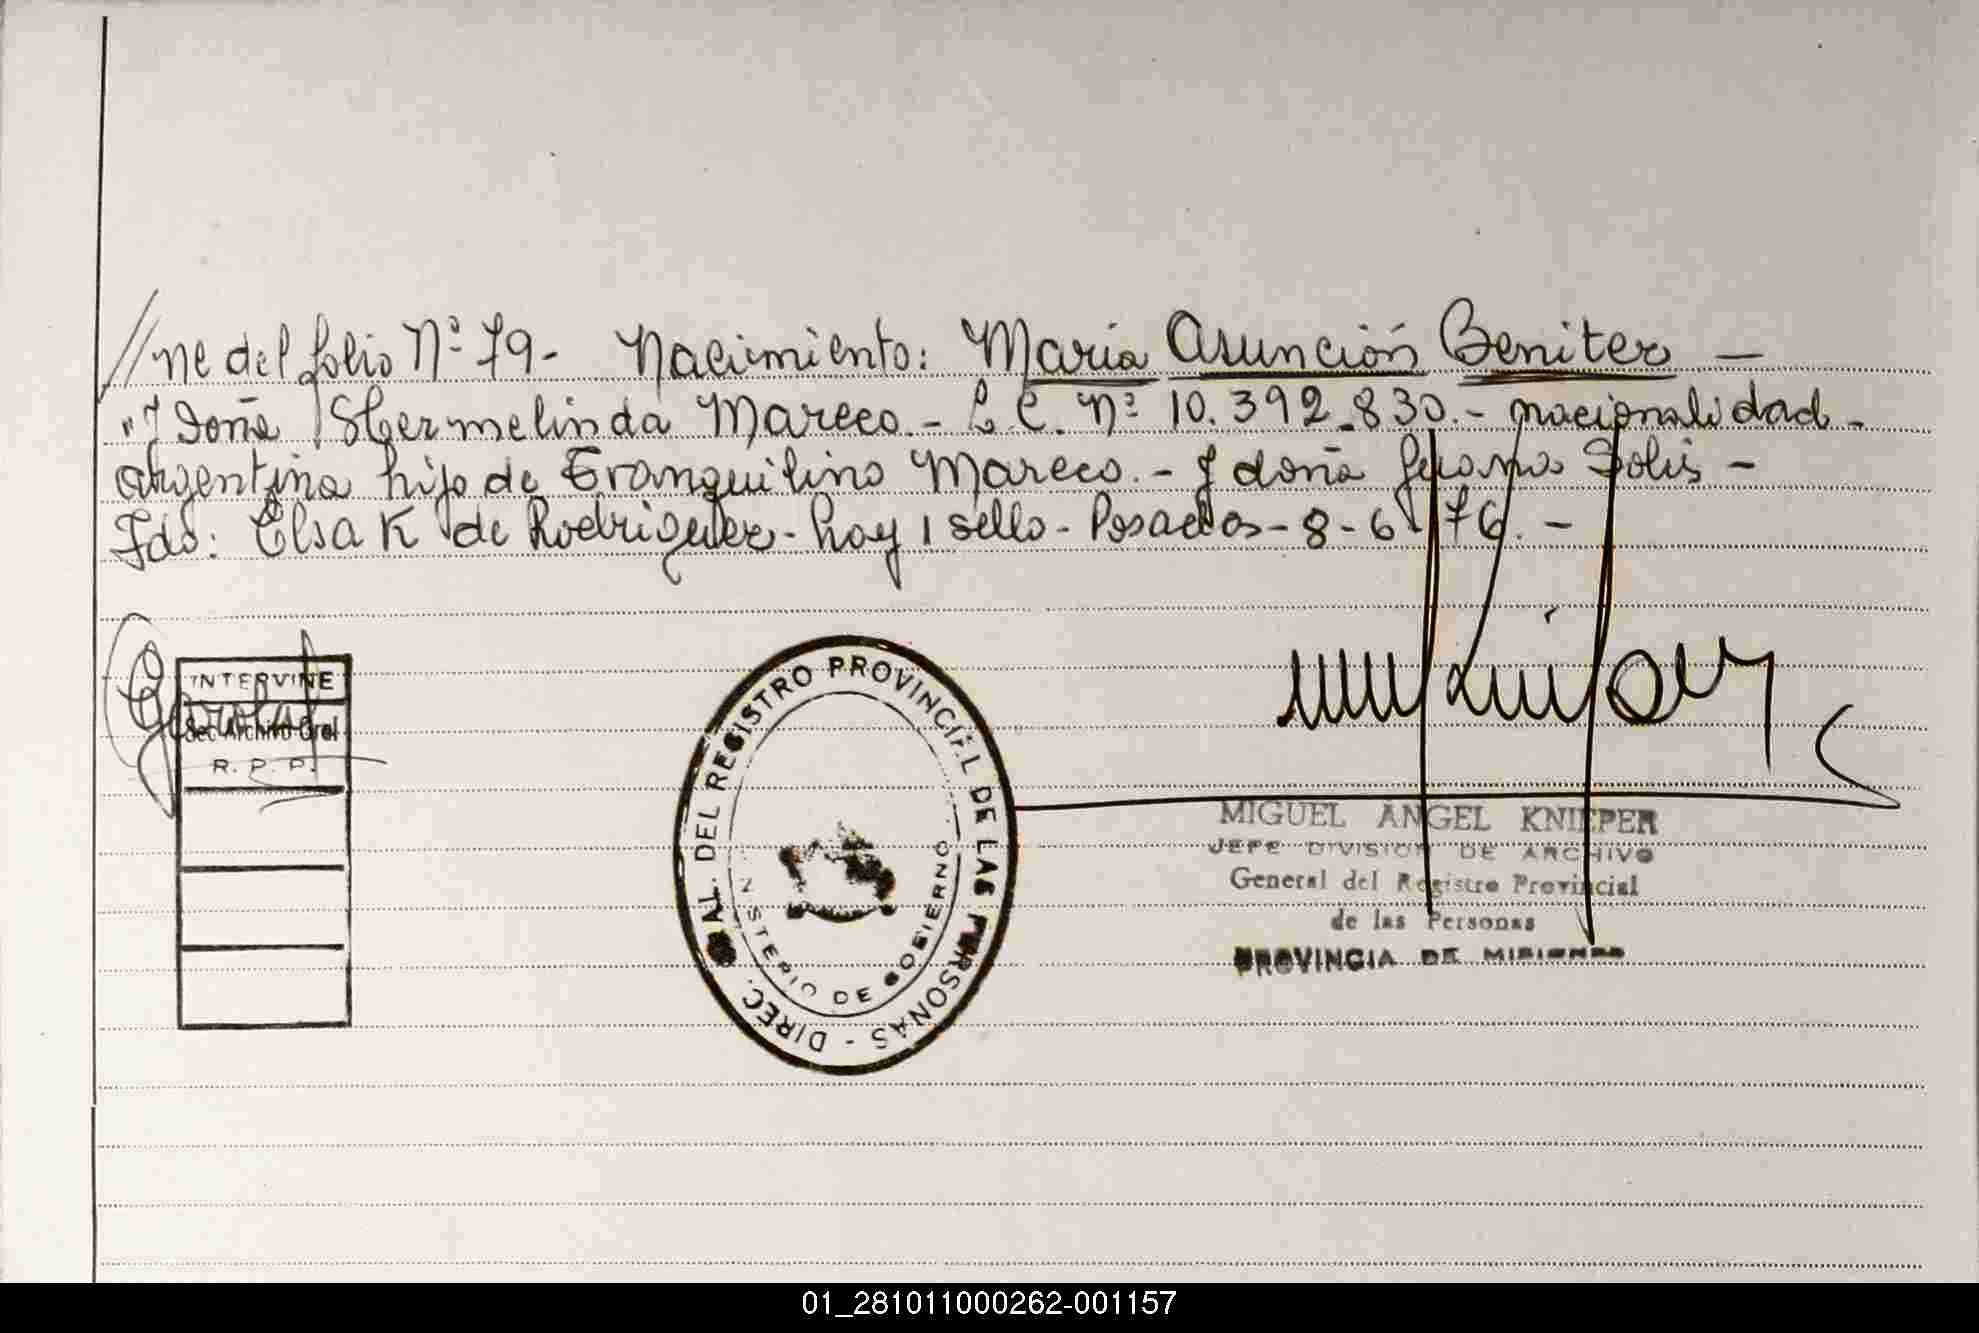 //ne del folio Nº 79- Nacimiento: María Asunción Benitez —
"y Doña Hermelinda Mareco.- L.C. Nº 10.392.830.- nacionalidad -
argentina hijo de Tranquilino Mareco.- y doña Solis -
Fdo: Elsa K de Rodriguez - hay 1 sello - Posadas - 8-6-76. -
INTERVINE
Sec Archivo Gral
R. P. P.
DIREC. GRAL. DEL REGISTRO PROVINCIAL DE LAS PERSONAS -
MINISTERIO DE GOBIERNO
MIGUEL ANGEL KNIEPER
JEFE DIVISION DE ARCHIVO
General del Registro Provincial
de las Personas
PROVINCIA DE MISIONES
01_281011000262-001157